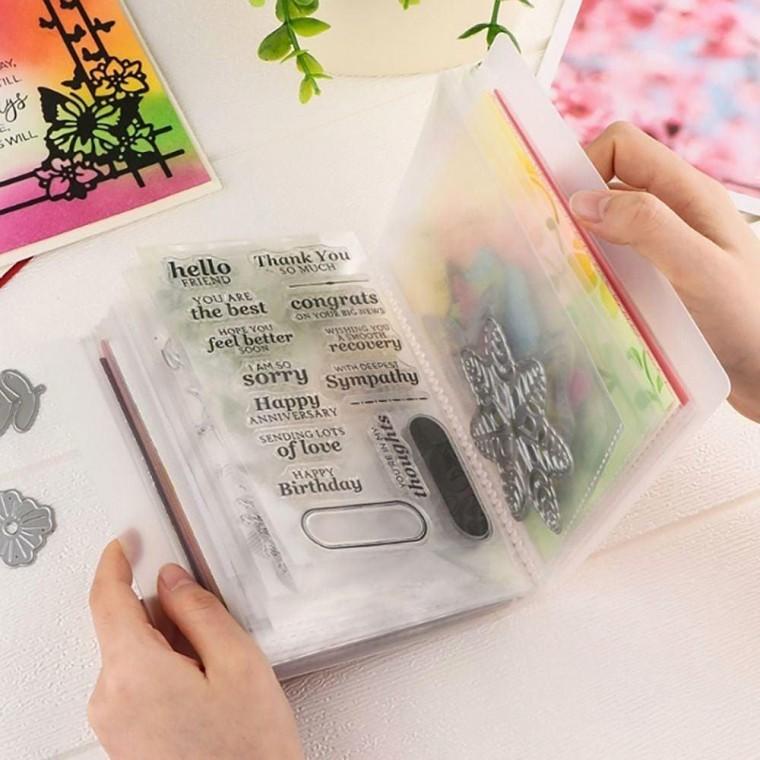 AY,
TILL
ys
E,
S WILL
hello
FRIEND
Thank You
SO MUCH
YOU ARE
the best
congrats
ON YOUR BIG NEWS
HOPE YOU
feel better
SOON
WISHING YOU
A SMOOTH
recovery
I AM SO
sorry
WITH DEEPEST
Sympathy
Happy
ANNIVERSARY
SENDING LOTS
of love
YOU'RE IN MY
thoughts
HAPPY
Birthday